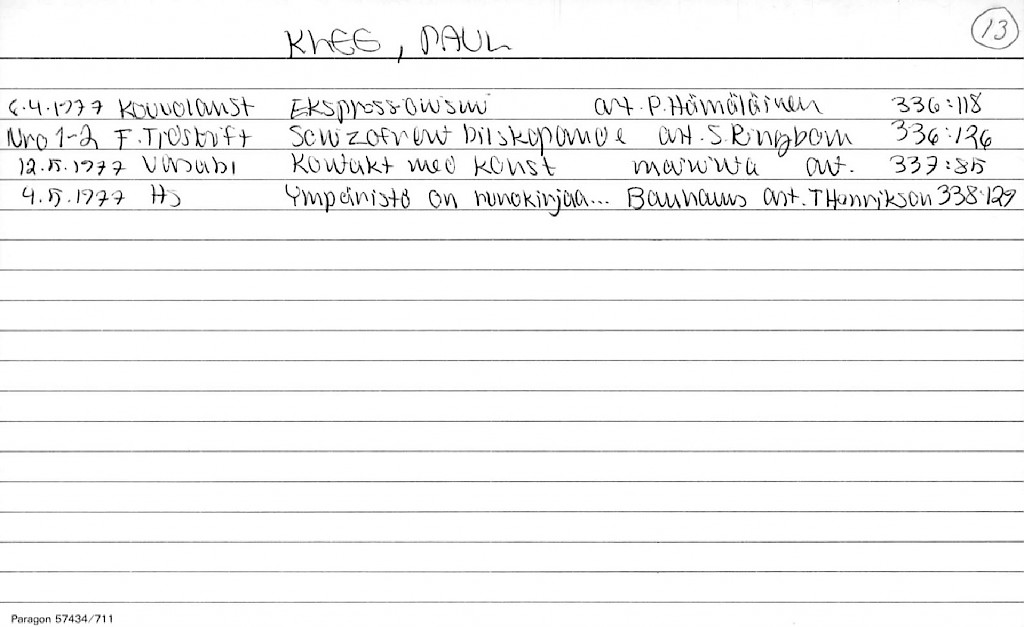 KLEE, PAUL
13
6.4.1977 Kouvolanst Ekspressionismi art. P. Hämäläinen 336:118
Nro 1-2 F. Tidskrift Schizofrent bildskapande art. S. Ringbom 336:126
12.5.1977 Vasabl Kontakt med konst maininta art. 337:85
4.5.1977 HS Ympäristö on runokirjaa... Bauhaus art. T Henrikson 338:129
Paragon 57434/711